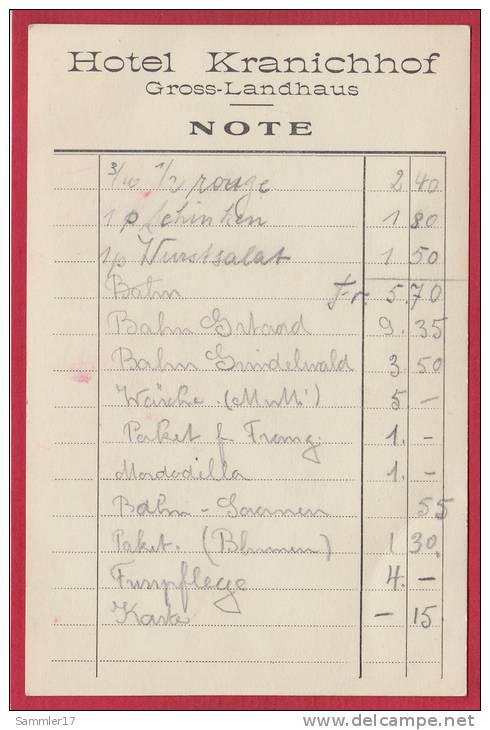 Hotel Kranichhof
Gross-Landhaus
NOTE
3/10 1/2 rouge 2 40
1 p Schinken 1 80
1 p Wurstsalat 1 50
Bahn Fr. 5.70
Bahn Gstaad 9.35
Bahn Grindelwald 3 50
Wäsche (Mutti) 5 –
Paket f 1. –
Mordadilla 1. –
Bahn - Saanen 55
Paket. (Blumen) 1 30.
Fusspflege 4. –
Karte – 15
Sammler17
www.delcampe.net